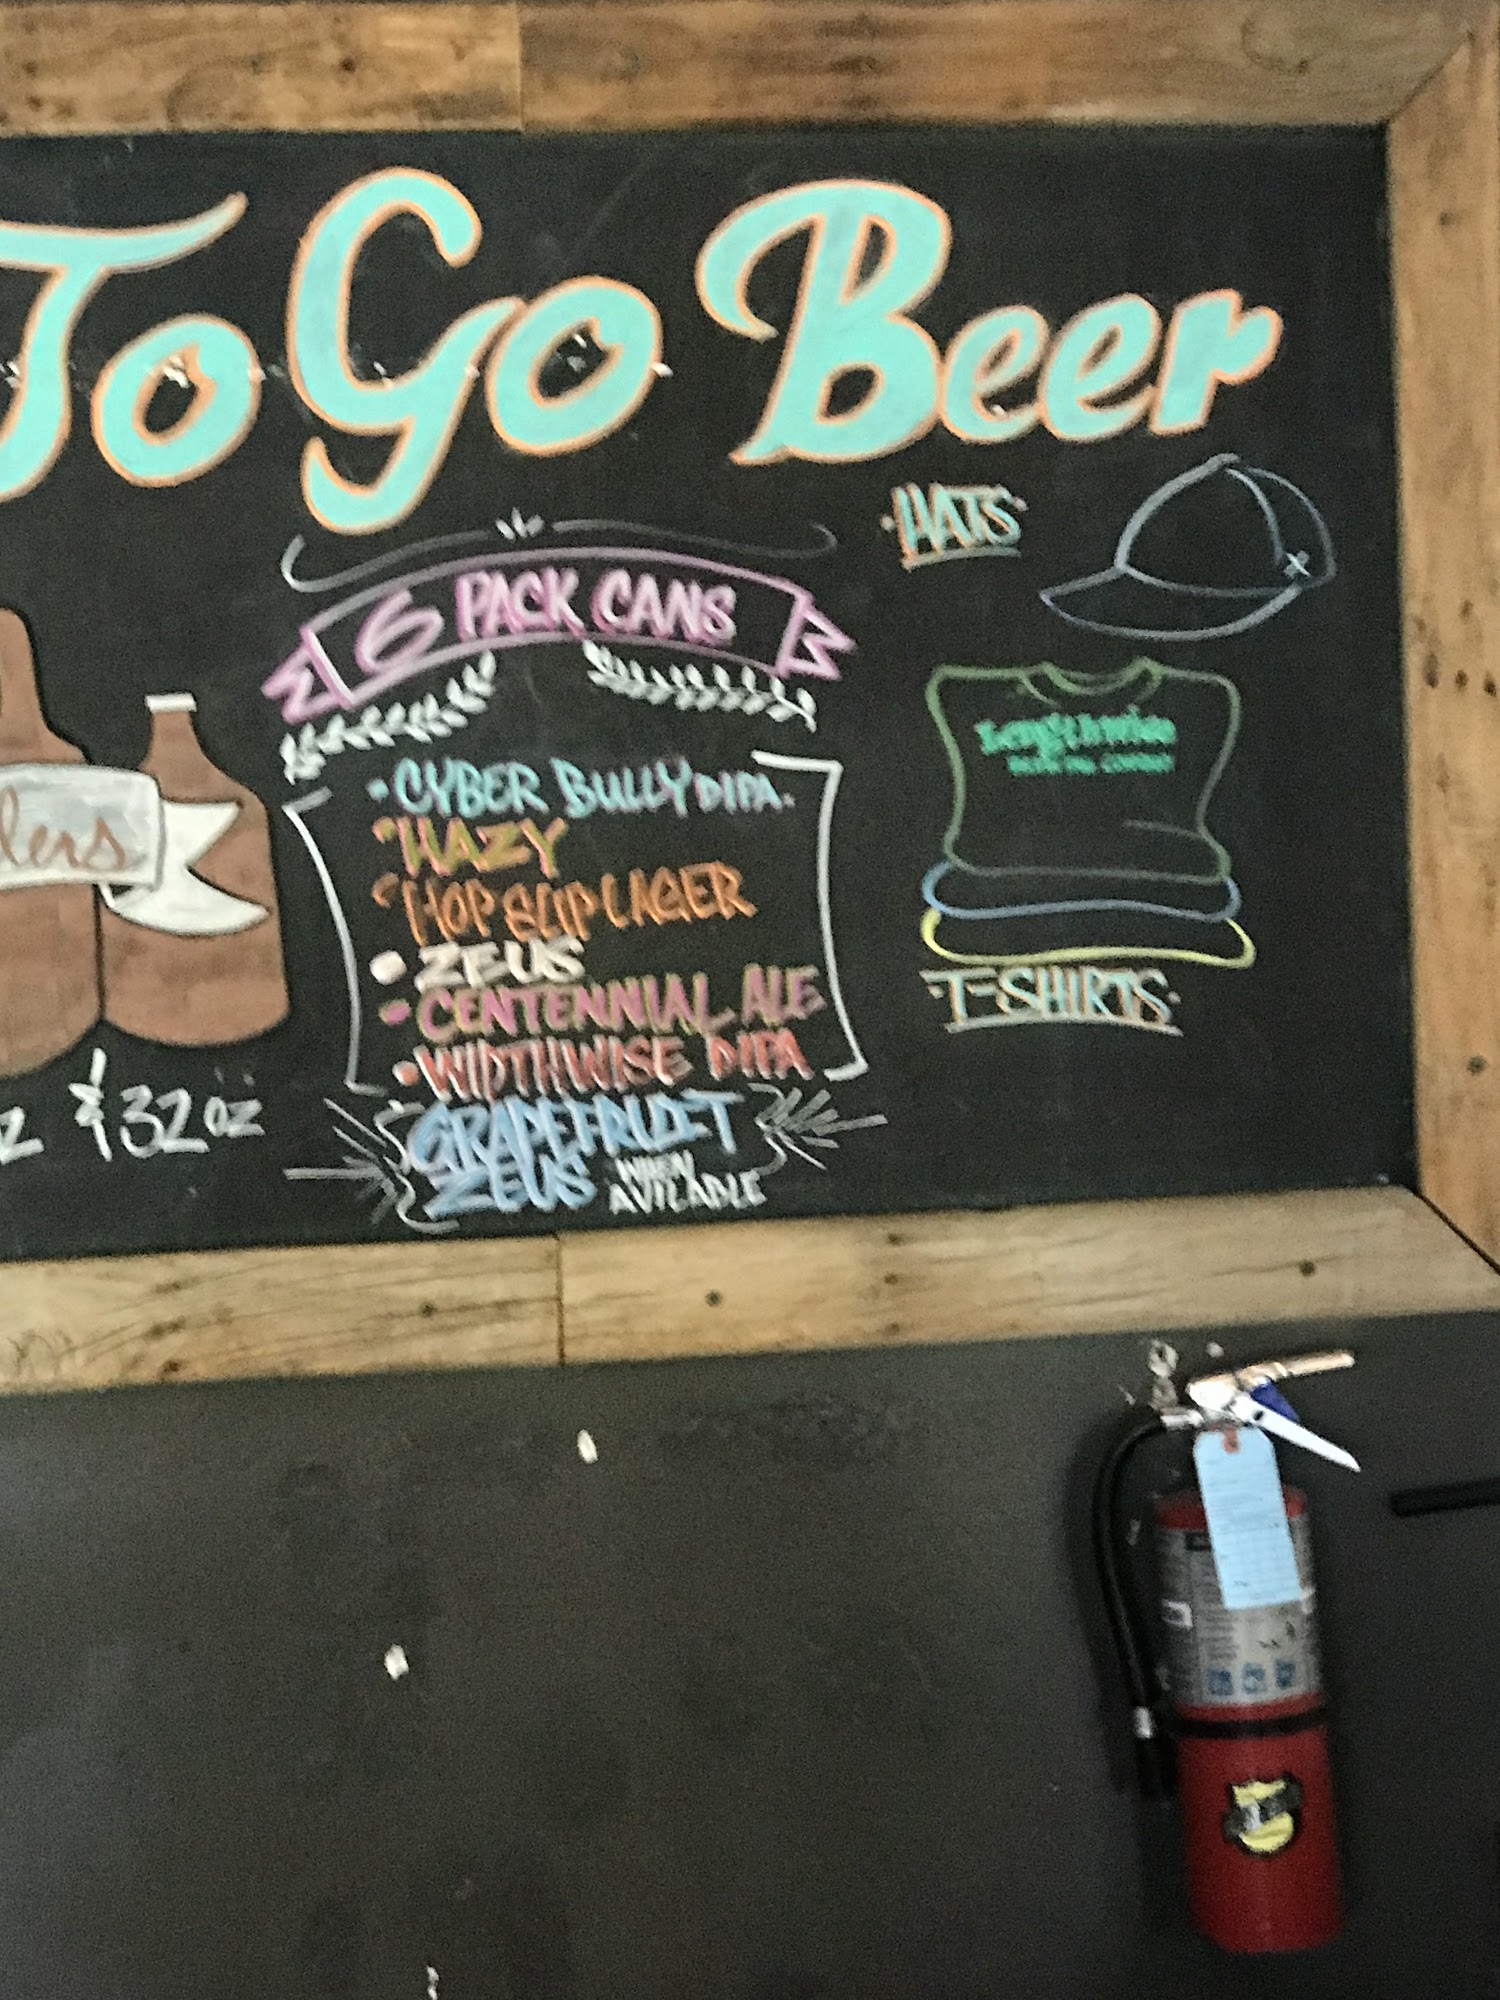 To Go Beer
·HATS·
6 PACK CANS
Lengthwise
BREWING COMPANY
• CYBER BULLY DIPA.
• HAZY
• HOP SLIP LAGER
• ZEUS
• CENTENNIAL ALE
• WIDTHWISE DIPA
GRAPEFRUIT
ZEUS WHEN
AVILABLE
·T-SHIRTS·
lers
& 32 oz